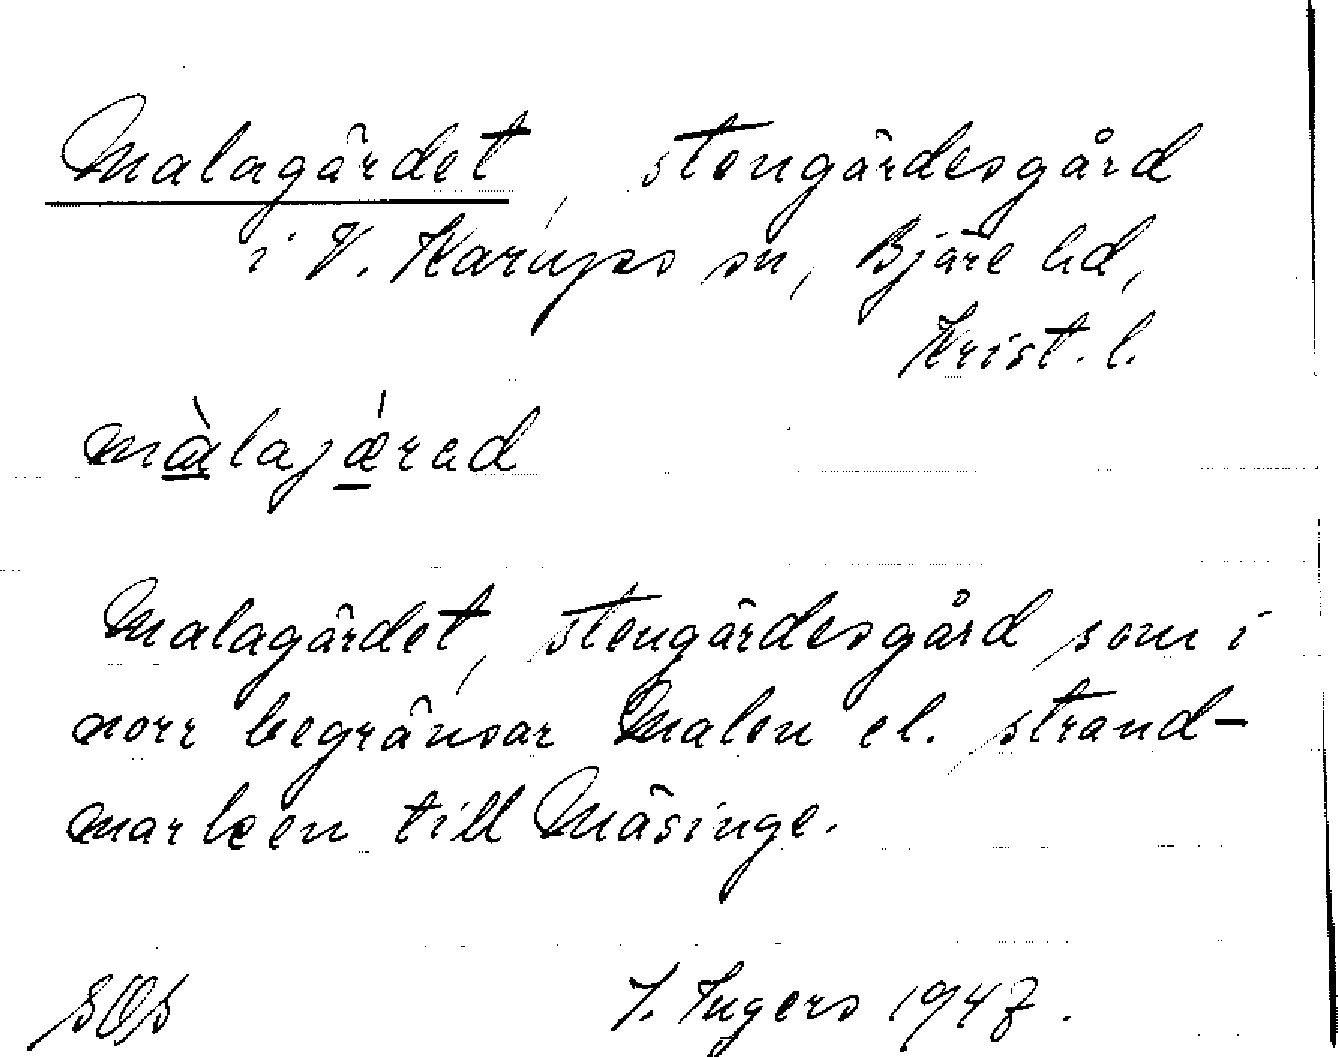 Malagärdet, stengärdesgård
i V. Karups sn, Bjäre hd,
Krist. l.
màlajǽrad
Malagärdet, stengärdesgård som i
norr begränsar Malen el. strand-
marken till Mäsinge.
SOS I. Ingers 1947.